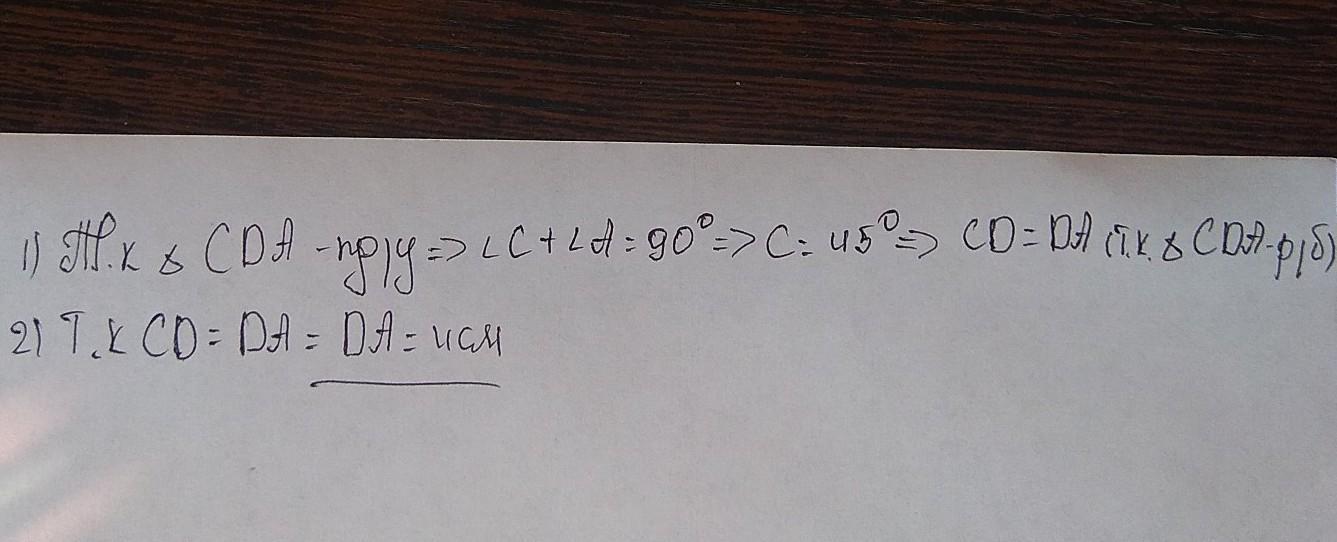 1) Т.к △ CDA - пр/у => ∠C + ∠A = 90° => C = 45° => CD = DA (т.к. △ CDA - р/б)
2) Т.к CD = DA = DA = 4см